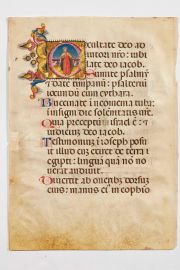 xultate deo ad
iutori nro: iubi
late deo iacob.
Sumite psalmū
⁊ date timpanū: psalteriū
iocundū cum cythara.
Buccinate i neomenia tuba:
insigni die solenitatis
Quia preceptū i israel ē: ⁊
iudicium deo iacob.
Testimonium i ioseph posu
it illud cū exiret de terra
egypti: linguā quā no no
uerat audiuit.
Diuertit ab oneribus dorsum
eius: manus ei in cophio